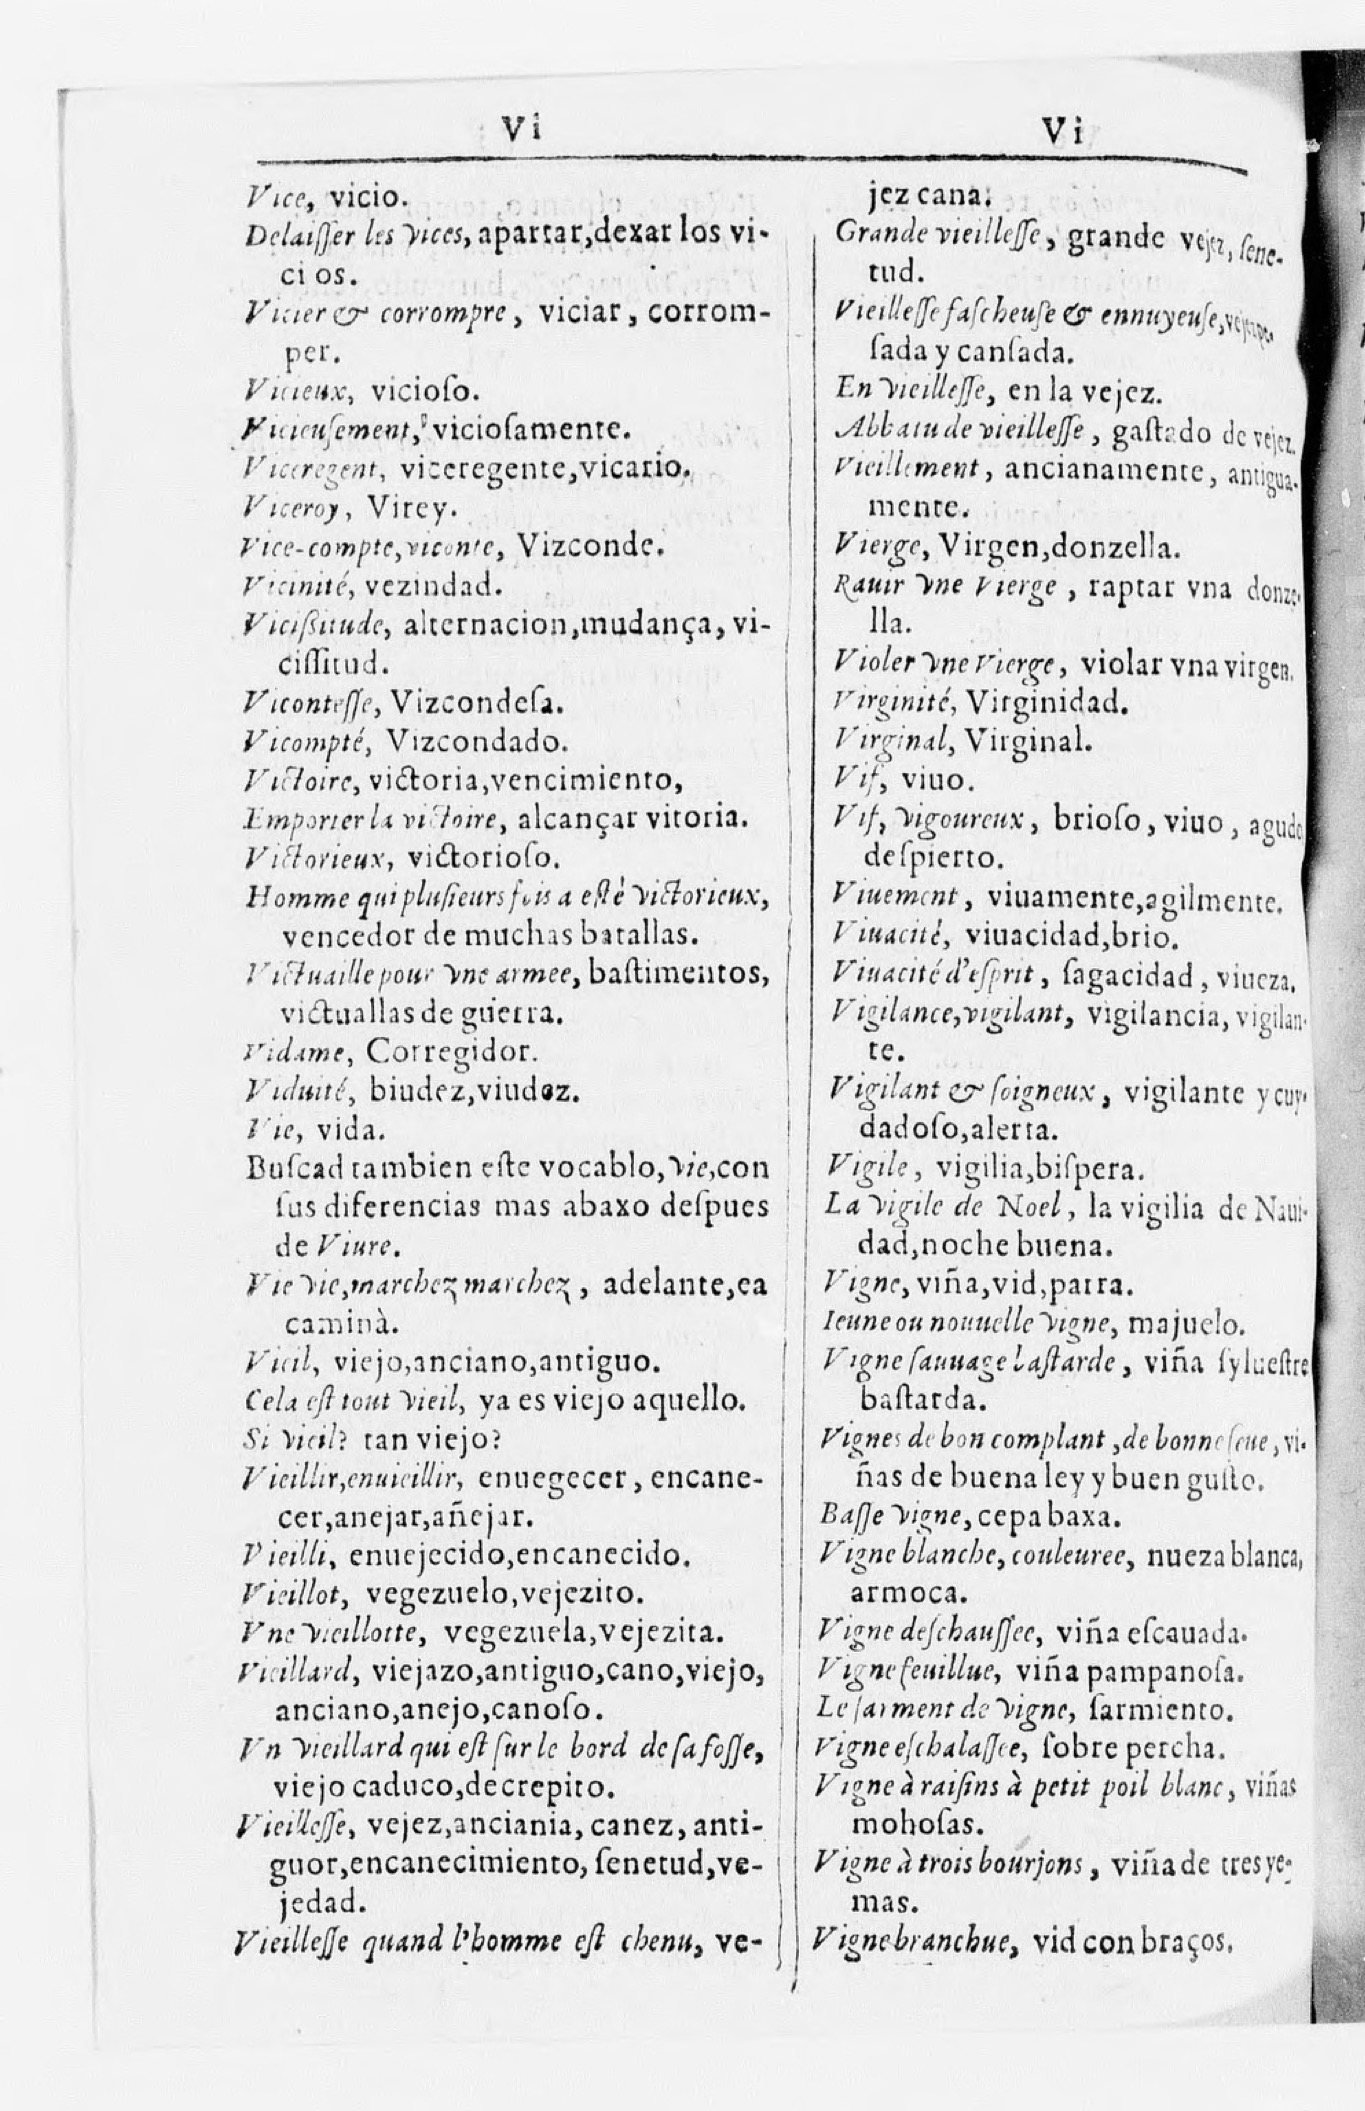 Vi
Vice, vicio.
Delaiſſer les vices, apartar,dexar los vi-
cios.
Vicier & corrompre, viciar, corrom-
per.
Vicieux, vicioſo.
Vicieuſement, vicioſamente.
Viceregent, viceregente,vicario.
Viceroy, Virey.
Vice-compte,viconte, Vizconde.
Vicinité, vezindad.
Viciſsitude, alternacion,mudança, vi-
ciſſitud.
Viconteſſe, Vizcondeſa.
Vicompté, Vizcondado.
Victoire, victoria,vencimiento,
Emporter la victoire, alcançar vitoria.
Victorieux, victorioſo.
Homme qui pluſieurs fois a eſté victorieux,
vencedor de muchas batallas.
Victuaille pour vne armee, baſtimentos,
victuallas de guerra.
Vidame, Corregidor.
Viduité, biudez,viudez.
Vie, vida.
Buſcad tambien eſte vocablo, vie,con
ſus diferencias mas abaxo deſpues
de Viure.
Vie vie,marchez marchez, adelante,ea
caminà.
Vieil, viejo,anciano,antiguo.
Cela eſt tout vieil, ya es viejo aquello.
Si vieil? tan viejo?
Vieillir,enuieillir, enuegecer, encane-
cer,anejar,añejar.
Vieilli, enuejecido,encanecido.
Vieillot, vegezuelo,vejezito.
Vne vieillotte, vegezuela,vejezita.
Vieillard, viejazo,antiguo,cano,viejo,
anciano,anejo,canoſo.
Vn vieillard qui eſt ſur le bord de ſa foſſe,
viejo caduco,decrepito.
Vieilleſſe, vejez,anciania, canez, anti-
guor,encanecimiento, ſenetud,ve-
jedad.
Vieilleſſe quand l'homme eſt chenu, ve-
Vi
jez cana.
Grande vieilleſſe, grande vejez, ſene-
tud.
Vieilleſſe faſcheuſe & ennuyeuſe,vejez pe-
ſada y canſada.
En vieilleſſe, en la vejez.
Abbatu de vieilleſſe, gaſtado de vejez.
Vieillement, ancianamente, antigua-
mente.
Vierge, Virgen,donzella.
Rauir vne Vierge, raptar vna donze-
lla.
Violer vne Vierge, violar vna virgen.
Virginité, Virginidad.
Virginal, Virginal.
Vif, viuo.
Vif, vigoureux, brioſo, viuo, agudo
deſpierto.
Viuement, viuamente,agilmente.
Viuacité, viuacidad,brio.
Viuacité d'eſprit, ſagacidad, viueza.
Vigilance,vigilant, vigilancia, vigilan-
te.
Vigilant & ſoigneux, vigilante y cuy-
dadoſo,alerta.
Vigile, vigilia,biſpera.
La vigile de Noel, la vigilia de Naui-
dad,noche buena.
Vigne, viña,vid,parra.
Ieune ou nouuelle vigne, majuelo.
Vigne ſauuage baſtarde, viña ſylueſtre
baſtarda.
Vignes de bon complant, de bonne ſeue, vi-
ñas de buena ley y buen guſto.
Baſſe vigne, cepa baxa.
Vigne blanche, couleuree, nueza blanca,
armoca.
Vigne deſchauſſee, viña eſcauada.
Vigne feuillue, viña pampanoſa.
Le ſarment de vigne, ſarmiento.
Vigne eſchalaſſee, ſobre percha.
Vigne à raiſins à petit poil blanc, viñas
mohoſas.
Vigne à trois bourjons, viña de tres ye-
mas.
Vigne branchue, vid con braços.